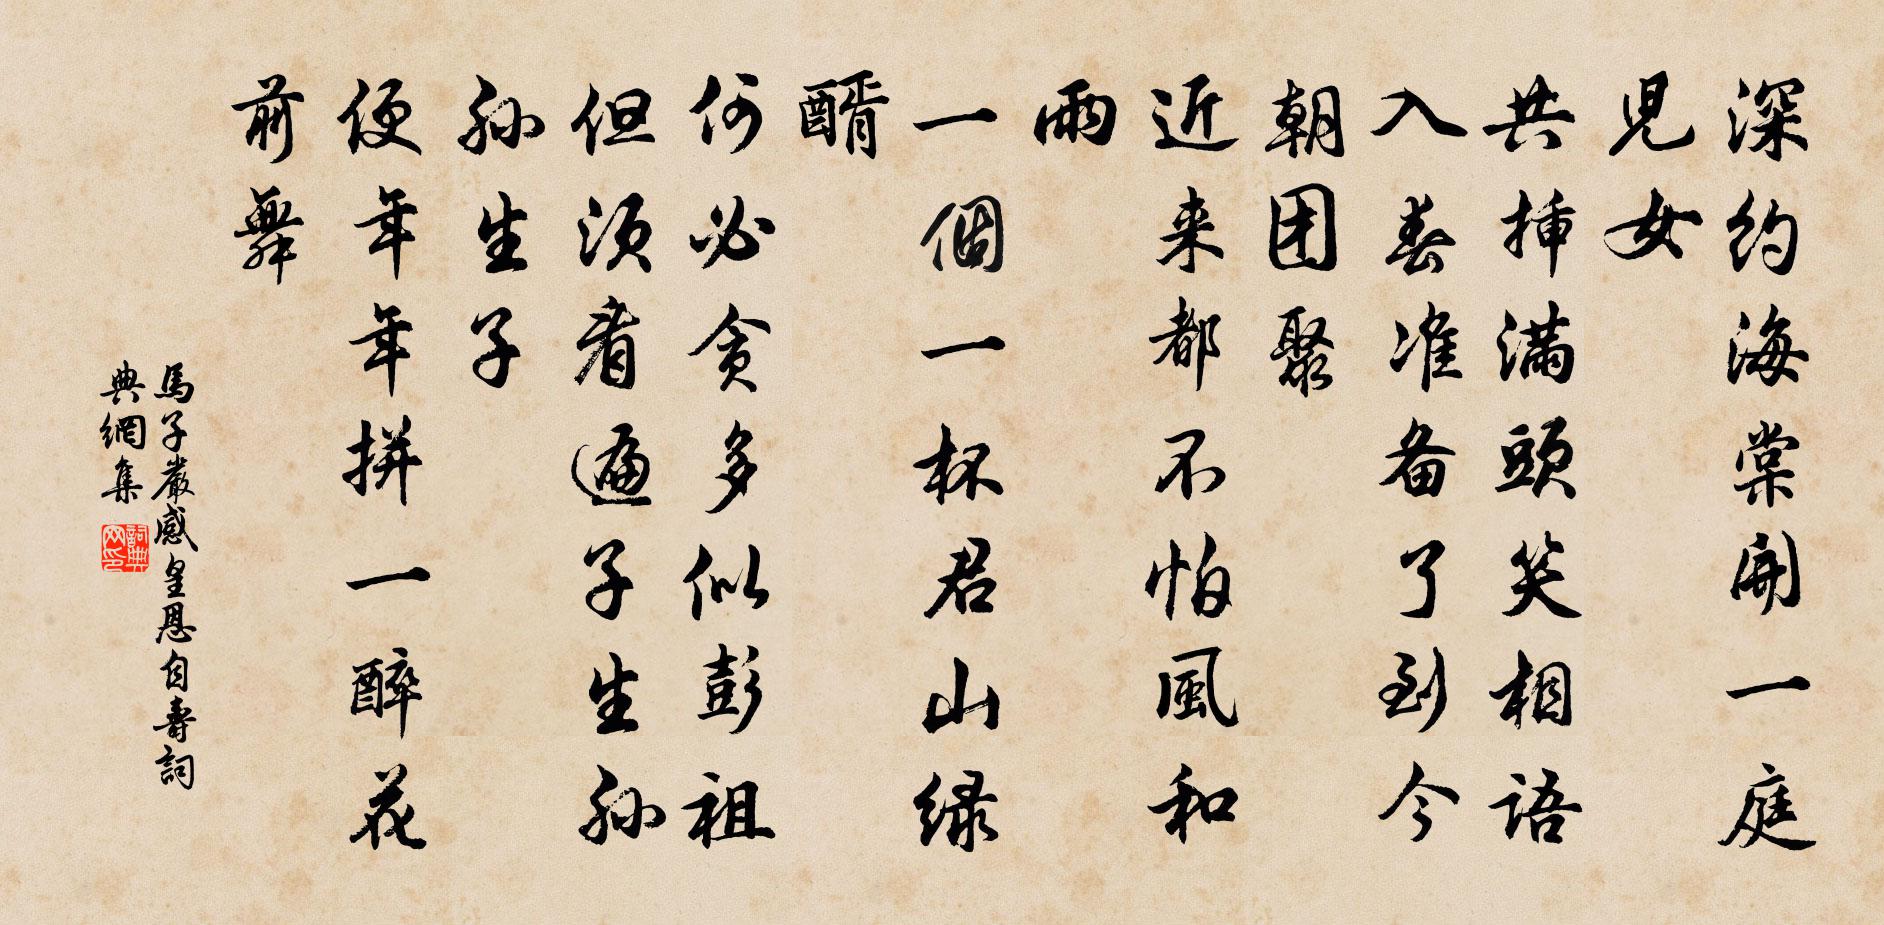 深约海棠開一庭
児女
共揷滿頭笑相語
入春准备了到今
朝团聚
近来都不怕風和
雨
一個一杯君山绿
醑
何必贪多似彭祖
但须看遍子生孙
孙生子
便年年拼一醉花
前舞
馬子嚴感皇恩自壽詞
典網集
詞典网印